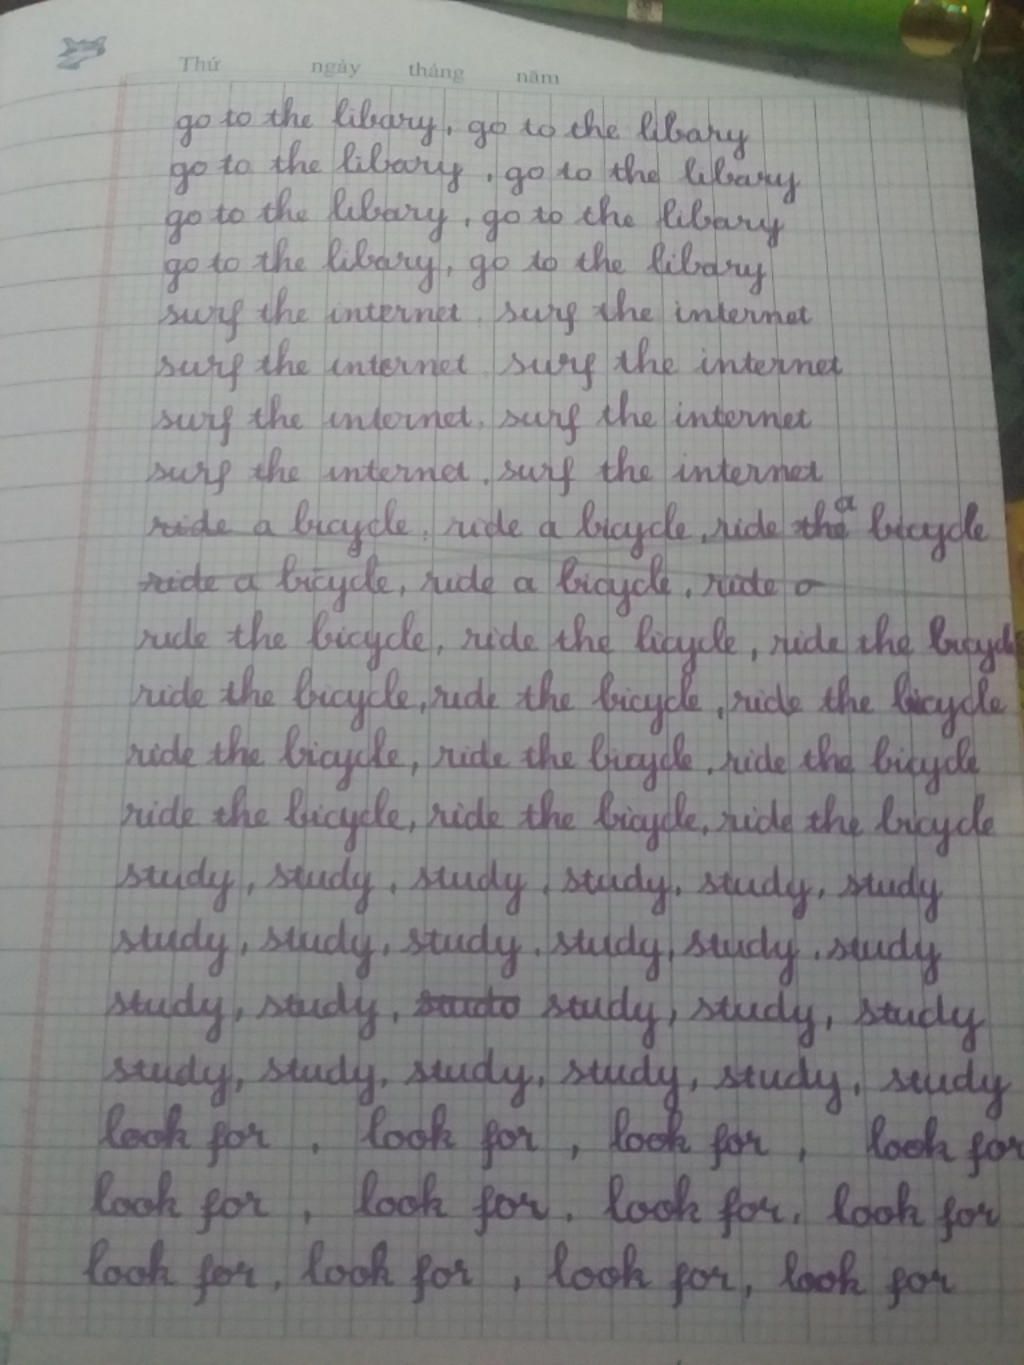 Thứ ngày tháng năm
go to the libary, go to the libary
go to the libary, go to the libary
go to the libary, go to the libary
go to the libary, go to the libary
surf the internet, surf the internet
surf the internet, surf the internet
surf the internet, surf the internet
surf the internet, surf the internet
ride a bicycle, ride a bicycle, ride the a bicycle
ride a bicycle, ride a bicycle, ride a
ride the bicycle, ride the bicycle, ride the bicycle
ride the bicycle, ride the bicycle, ride the bicycle
ride the bicycle, ride the bicycle, ride the bicycle
ride the bicycle, ride the bicycle, ride the bicycle
study, study, study, study, study, study
study, study, study, study, study, study
study, study, study, study, study
study, study, study, study, study, study
look for, look for, look for, look for
look for, look for, look for, look for
look for, look for, look for, look for